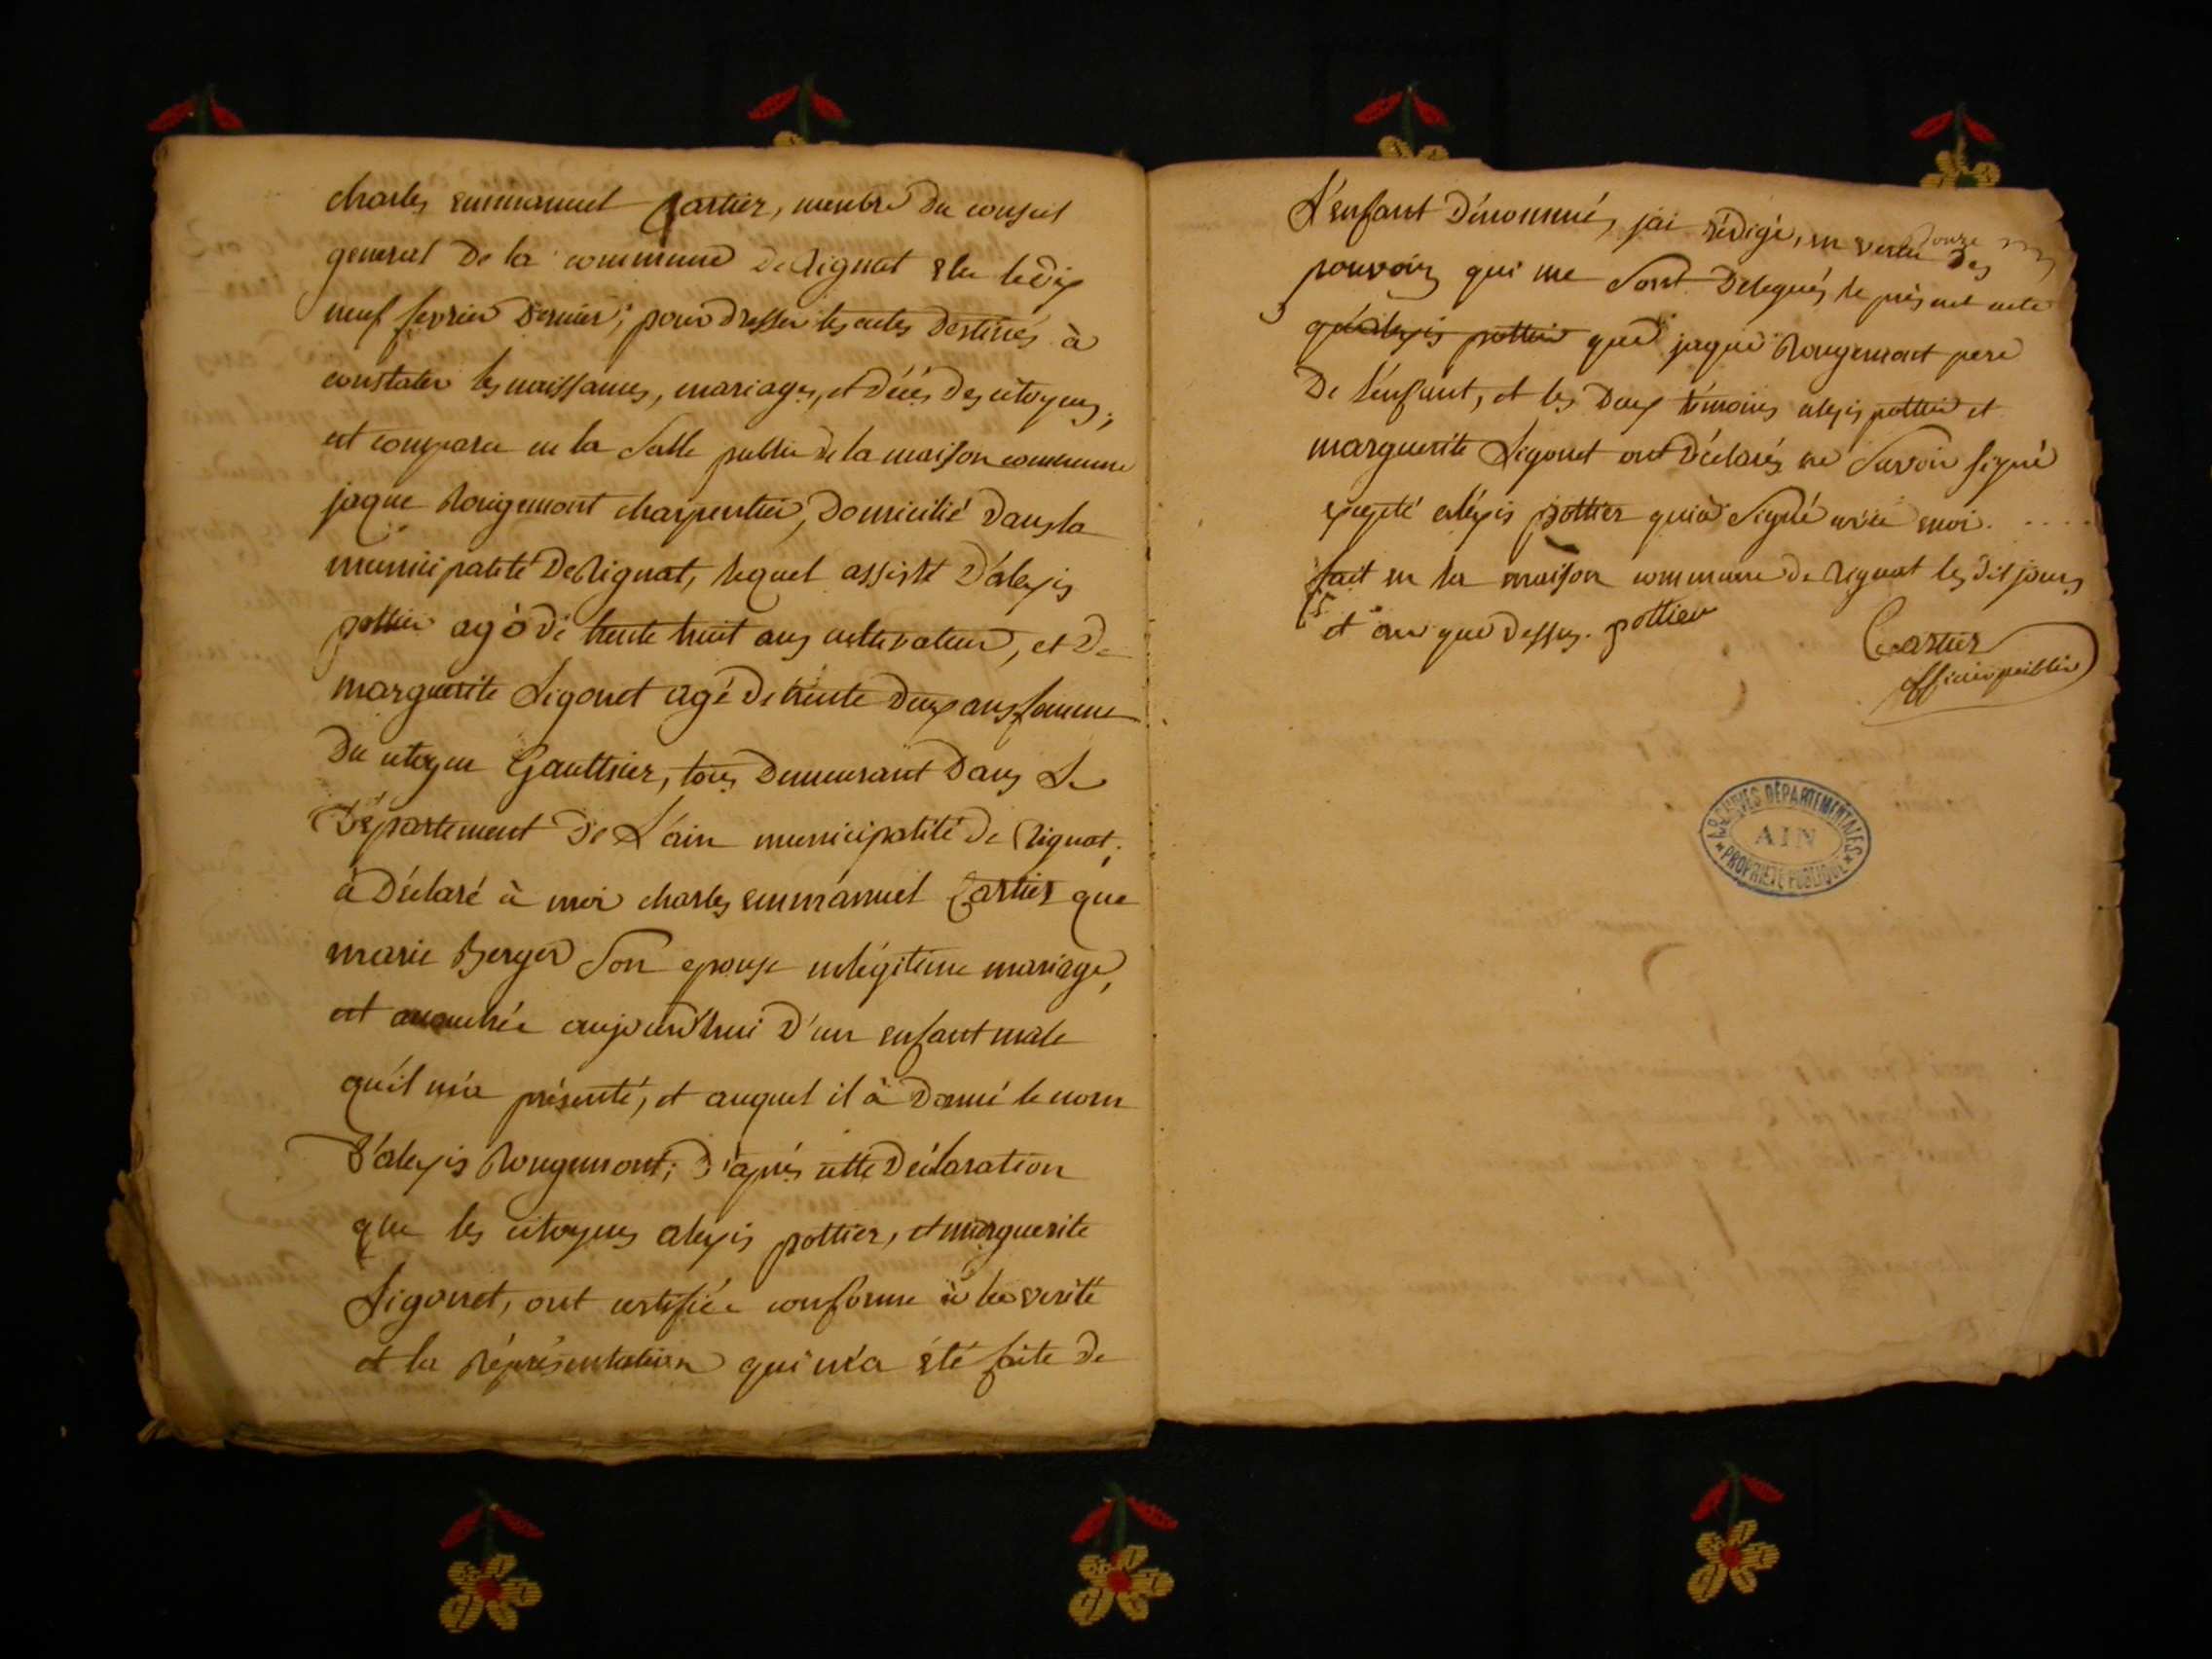 charles emmanuel Cartier, membre du conseil
general De la commune De Rignat elu le dix
neuf fevrier Dernier; pour dresser les actes Destinés à
constater les naissances, mariages, et Décés des citoyens;
est comparu en la Salle public de la maison commune
jaque Rougemont charpentier, Domicilié Dans la
municipalité De Rignat, lequel assisté D'alexis
pottier agé de trente huit ans cultivateur, et De
marguerite Ligonet agé De trente Deux ans femme
Du citoyen Gaulthier, tous Demeurant Dans Le
Département De L'ain municipalité de Rignat,
à Déclaré à moi charles emmanuel Cartier que
marie Berger Son epouse en légitime mariage,
est accouchée aujourd'hui D'un enfant male
qu'il m'a présenté, et auquel il à Donné le nom
D'alexis Rougemont; D'aprés cette Déclaration
que les citoyens alexis pottier, et marguerite
Ligonet, ont certifiée conforme à la verité
et la réprésentation qui m'a été faite de
L'enfant Dénommé, jai rédigé, en vertu Des
onze
pouvoirs qui me Sont Delegués le présent acte
qu'alexis pottier que jaque Rougemont pere
De L'enfant, et les Deux témoins alexis pottier et
marguerite Ligonet ont Déclarés ne Savoir signé
expepté alexis pottier qui à Signé avec moi. ....
fait en la maison commune de Rignat les dit jours
et an que Dessus. pottier
Cartier
officier public
ARCHIVES DÉPARTEMENTALES
AIN
PROPRIÉTÉ PUBLIQUE